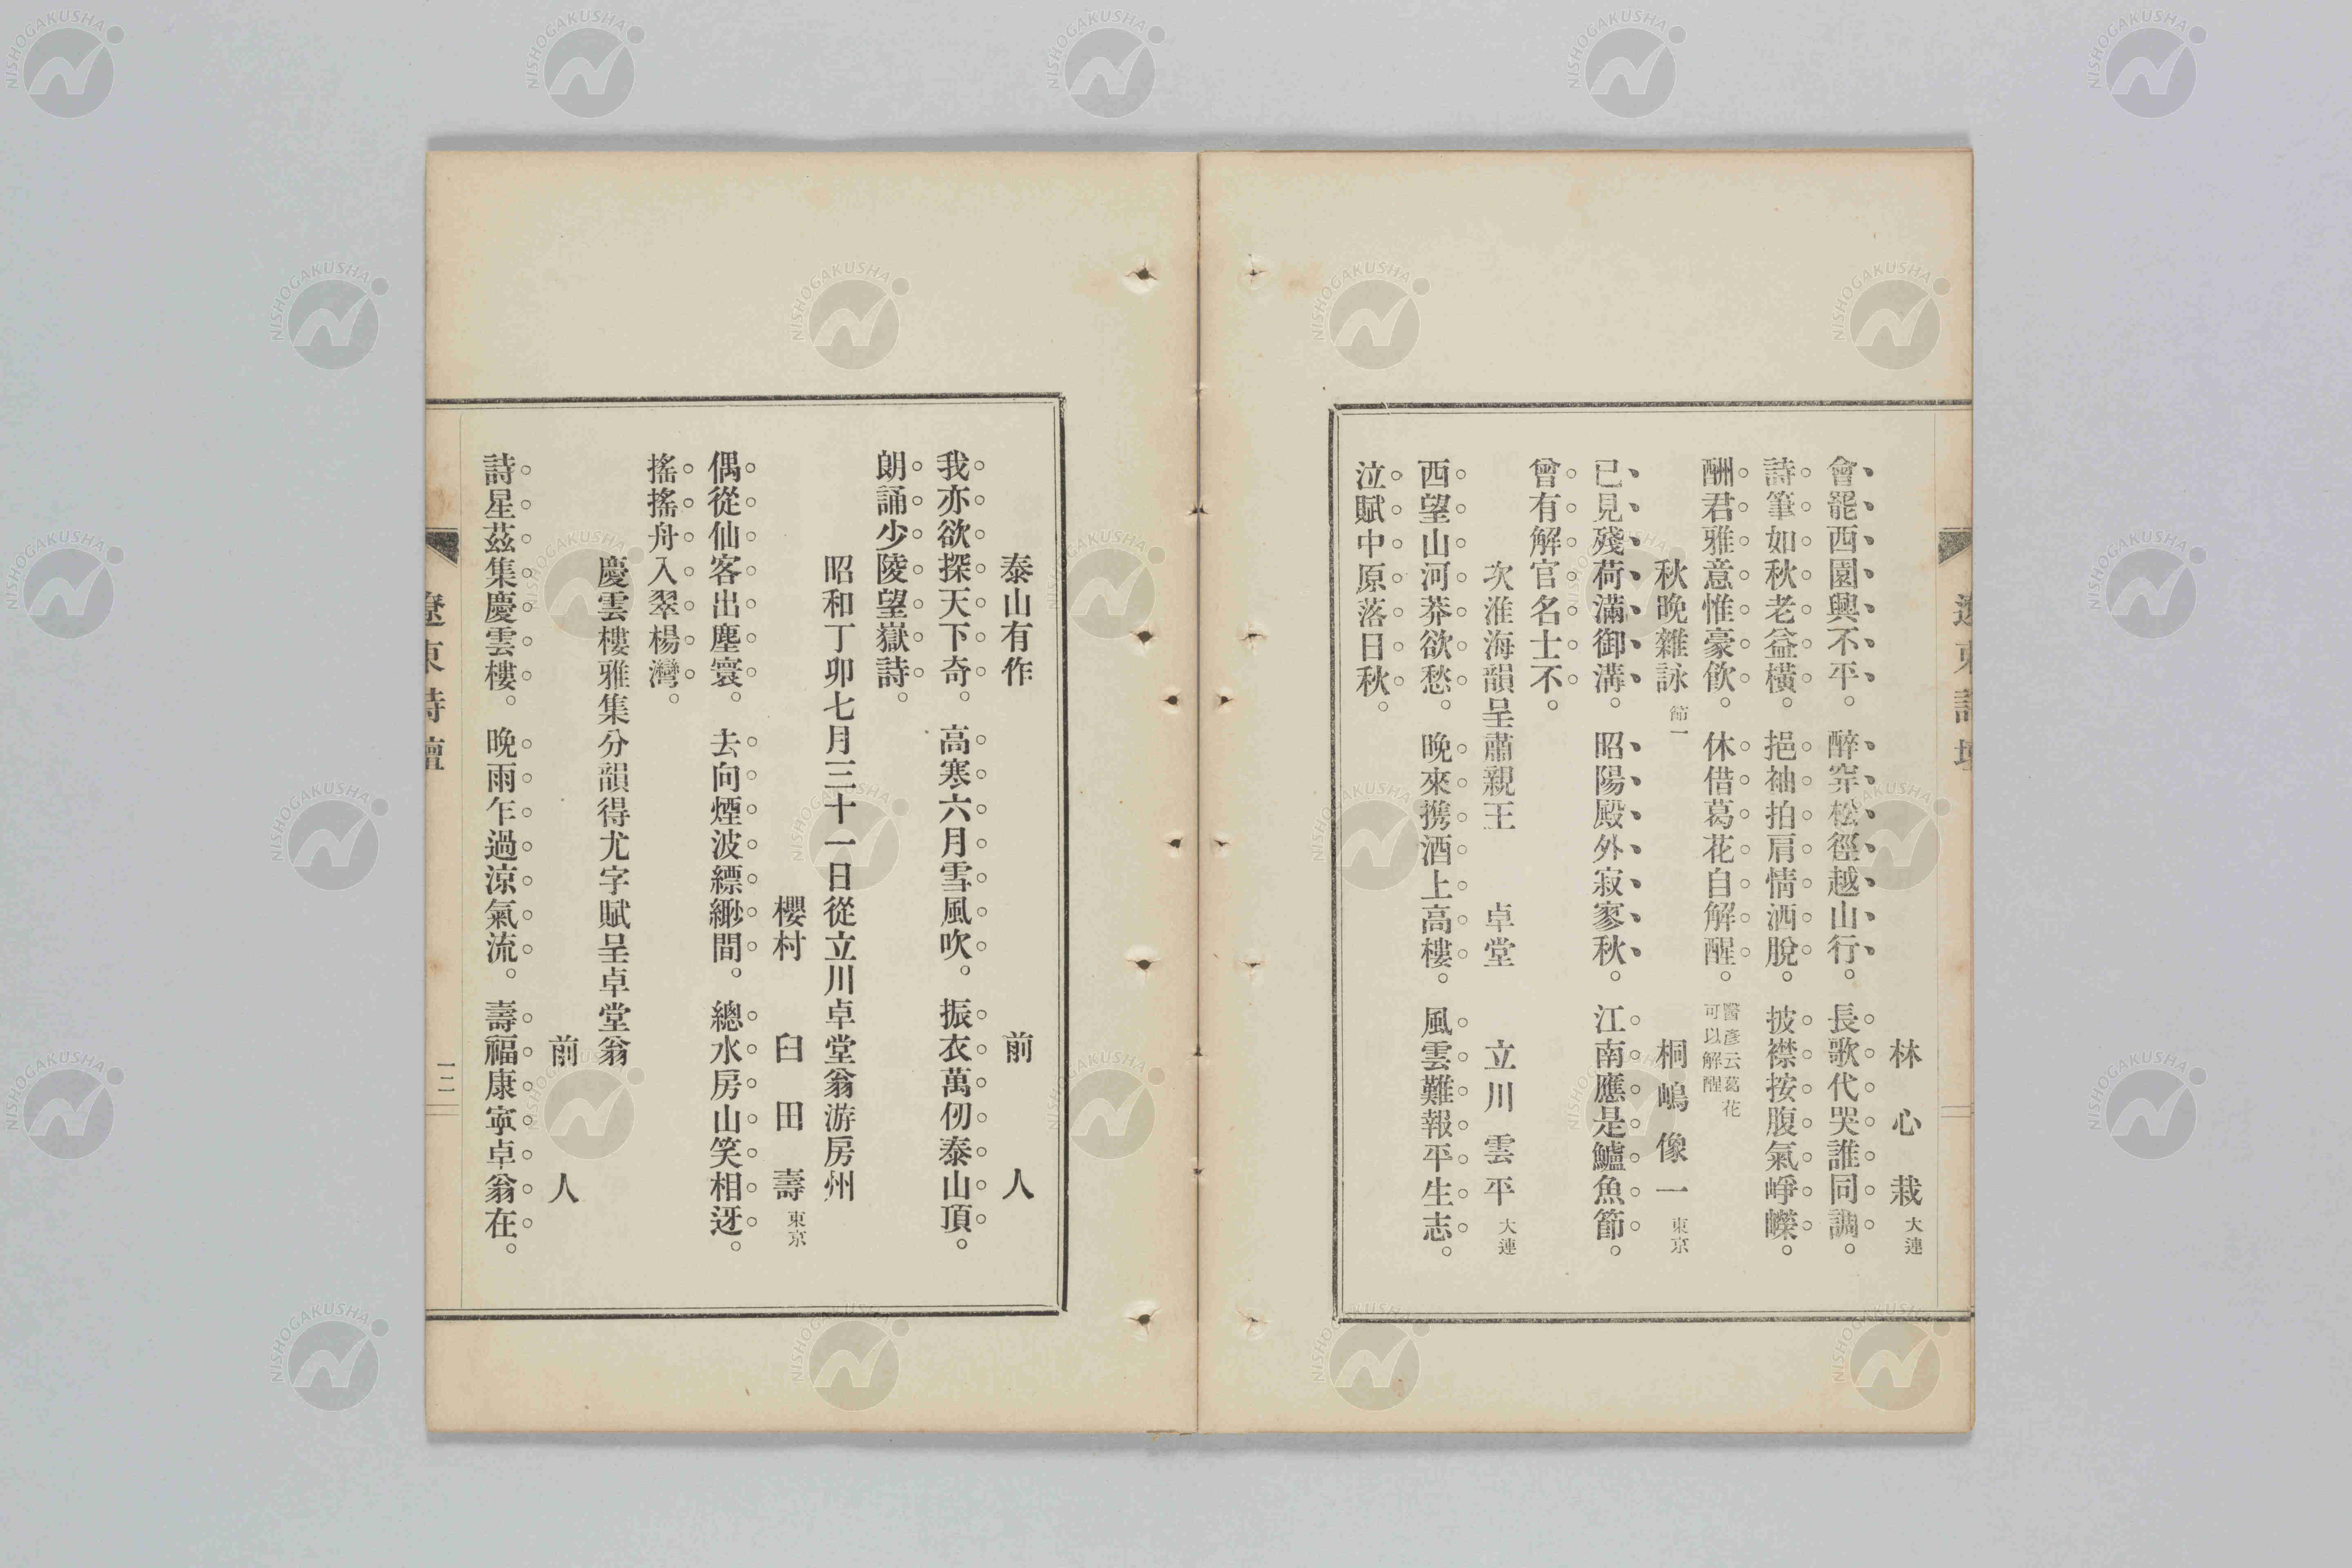 林心栽 大連
會罷西園興不平。醉穿松徑越山行。長歌代哭誰同調。
詩筆如秋老益橫。挹袖拍肩情洒脫。披襟按腹氣崢嶸。
酬君雅意惟豪飮。休借葛花自解酲。醫彥云葛花可以解酲
秋晚雜詠 節一 桐嶋像一 東京
已見殘荷滿御溝。昭陽殿外寂寥秋。江南應是鱸魚節。
曾有解官名士不。
次淮海韻呈肅親王 卓堂 立川雲平 大連
西望山河莽欲愁。晚來携酒上高樓。風雲難報平生志。
泣賦中原落日秋。
泰山有作 前人
我亦欲探天下奇。高寒六月雪風吹。振衣萬仞泰山頂。
朗誦少陵望嶽詩。
昭和丁卯七月三十一日從立川卓堂翁游房州
櫻村 臼田壽 東京
偶從仙客出塵寰。去向煙波縹緲間。總水房山笑相迓。
搖搖舟入翠楊灣。
慶雲樓雅集分韻得尤字賦呈卓堂翁
前人
詩星茲集慶雲樓。晚雨乍過涼氣流。壽福康寧卓翁在。
遼東詩壇
一二
NISHOGAKUSHA